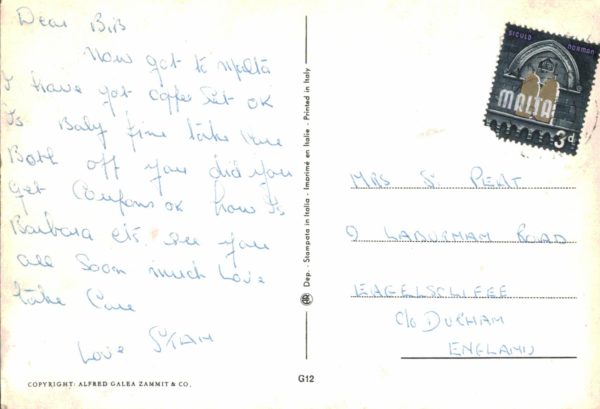 Dear Bib
Now got to Malta
I have got coffee set ok
Is Baby fine take care
Both off you did you
get Coupons ok how Is
Barbara etc. see you
all soon much Love
take Care
Love
COPYRIGHT: ALFRED GALEA ZAMMIT & CO.
G12
Dep. Stampata in Italia - Imprimé en Italie - Printed in Italy
SICULO NORMAN
MALTA
3d
MRS S. PEAT
9 LABURNAM ROAD
EAGELSCLIFFE
C/o DURHAM
ENGLAND